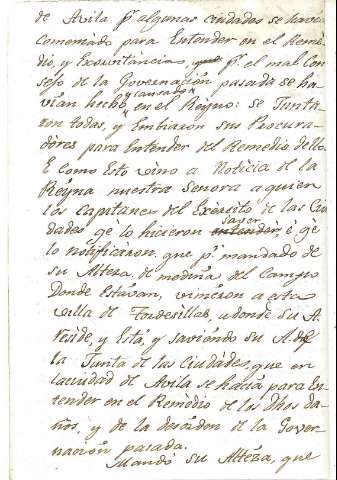 de Avila pr algunas ciudades se havia
comenzado para Entender en el Reme-
dio, y Exorvitancia, que pr. el mal Con
sejo de la Governación pasada se ha-
vian hecho y causado en el Reyno: se Junta-
ron todas, y Embiaron sus Procura-
dores para Entender del Remedio dello.
E como Esto vino a Noticia de la
Reyna nuestra Señora a quien
los capitanes del Exército de las Ciu
dades ge lo hicieron entender, saver é ge
lo notificaron, que pr. mandado de
su Alteza. de medina del Campo
Donde Estávan, viniéron a esta
villa de Tordesillas, adonde su A.
reside, y Está, y saviéndo su A. de
la Junta de las Ciudades, que en
la ciudad de Avila se hacía para En
tender en el Remédio de los Dhos da-
ños, y de la desórden de la Gover-
nación pasada.
Mandó su Altéza, que